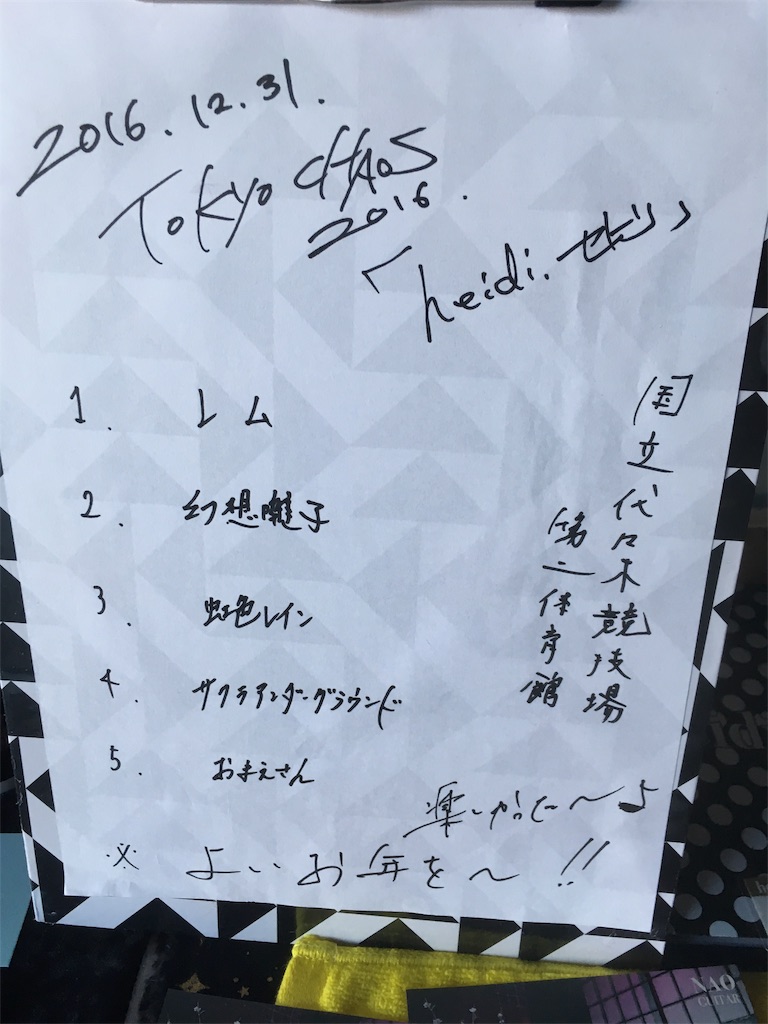 2016.12.31.
TOKYO CHAOS
2016.
「heidi.
国立代々木競技場
第二体育館
1. レム
2. 幻想囃子
3. 虹色レイン
4. サクラアンダーグラウンド
5. おまえさん
楽しかった〜♪
※ よいお年を〜!!
NAO
GUITAR